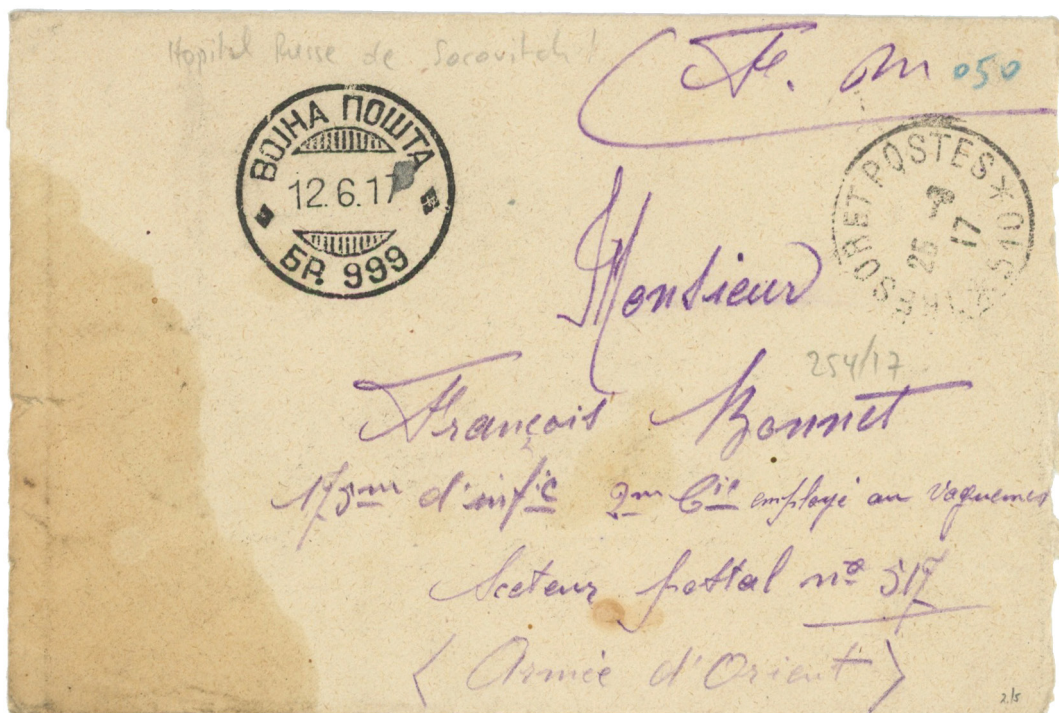 Hopital Russe de Socovitch !
F. M 050
ВОЈНА ПОШТА
12.6.17
БР. 999
TRESOR ET POSTES * 510 *
25
17
Monsieur
254/17
François Bonnet
175me d'infie 2me Cie employé au vaguemes
Secteur postal no 517
(Armée d'Orient)
2/5